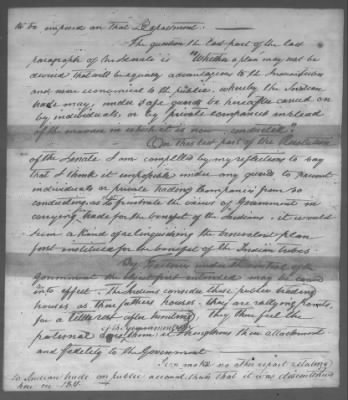 to be imposed on that Department. —
The question the last part of the last
paragraph of the Senate is "Whether a plan may not be
devised that will be equally advantageous to the Indian tribes
and more economical to the public; whereby the Indian
trade may, under safe guards be hereafter carried on
by individuals, or by private companies instead
of the manner in which it is now conducted."
On this last part of the Resolution
of the Senate I am compelled by my reflections to say
that I think it impossible under any guards to prevent
individuals or private trading Companies from so
conducting as to frustrate the views of Government in
carrying trade for the benefit of the Indians. it would
seem a kind of relinquishing the benevolent plan
first instituted for the benefit of the Indian tribes.
By factories under the control of
government the object first intended may be carried
into effect. The Indians consider these public trading
houses as their fathers houses. they are rallying points,
for a after hunting; they then feel the
paternal of the Government it strengthens their attachment
and fidelity to the Government
I can make no other report relating
to Indian trade on public account, than that it was discontinued
here in 1814.